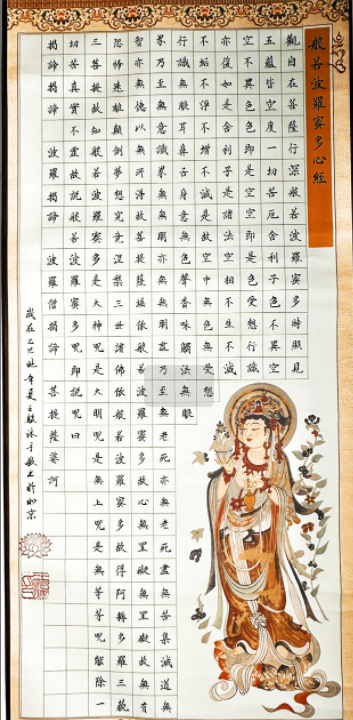 般若波羅蜜多心經
觀自在菩薩行深般若波羅蜜多時照見
五蘊皆空度一切苦厄舍利子色不異空
空不異色色即是空空即是色受想行識
亦復如是舍利子是諸法空相不生不滅
不垢不淨不增不減是故空中無色無受想
行識無眼耳鼻舌身意無色聲香味觸法無眼
界乃至無意識界無無明亦無無明盡乃至無老死亦無老死盡無苦集滅道無
智亦無德以無所得故菩提薩埵依般若波羅蜜多故心無罣礙無罣礙故無有
恐怖遠離顛倒夢想究竟涅槃三世諸佛依般若波羅蜜多故得阿耨多羅三藐
三菩提故知般若波羅蜜多是大神呪是大明呪是無上呪是無等等呪能除一
切苦真實不虛故說般若波羅蜜多呪即說呪曰
揭諦揭諦 波羅揭諦 波羅僧揭諦 菩提薩婆訶
歲在乙巳